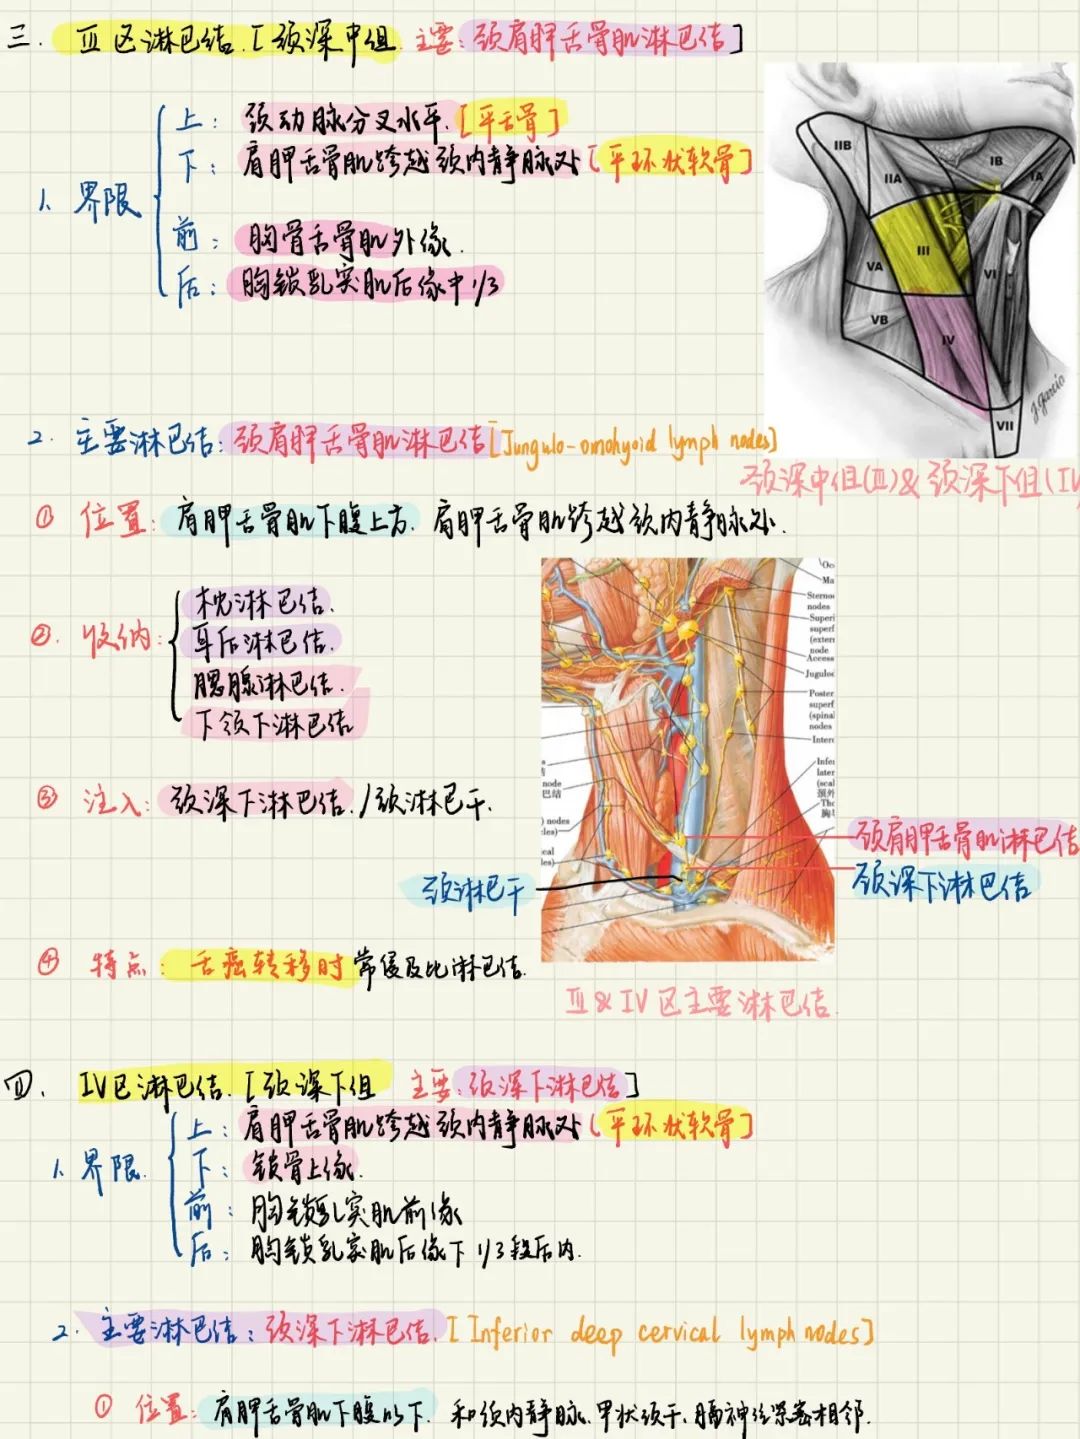 三. Ⅲ区淋巴结.[颈深中组 主要:颈肩胛舌骨肌淋巴结]
1. 界限
上: 颈动脉分叉水平.[平舌骨]
下: 肩胛舌骨肌跨越颈内静脉处[平环状软骨]
前: 胸骨舌骨肌外缘.
后: 胸锁乳突肌后缘中1/3
IIB
IIA
IB
IA
III
VA
VI
VB
IV
VII
J. Garcia
颈深中组(Ⅲ)&颈深下组(IV
2. 主要淋巴结:颈肩胛舌骨肌淋巴结[Jungulo-omohyoid lymph nodes]
① 位置: 肩胛舌骨肌下腹上方. 肩胛舌骨肌跨越颈内静脉处.
② 收纳:
枕淋巴结.
耳后淋巴结.
腮腺淋巴结.
下颌下淋巴结
③ 注入: 颈深下淋巴结./颈淋巴干.
Oc
Ma
Sterno
nodes
Superi
superf
(extern
node
Access
Jugulo
Poster
superf
(spina
nodes
Inter
Infe
later
(scal
颈外
Tho
胸
node
巴结
) nodes
les)
cal
les)
颈肩胛舌骨肌淋巴结
颈深下淋巴结
颈淋巴干
④ 特点: 舌癌转移时 常侵及此淋巴结.
Ⅲ & IV区主要淋巴结.
四. IV区淋巴结.[颈深下组 主要:颈深下淋巴结]
1. 界限.
上: 肩胛舌骨肌跨越颈内静脉处(平环状软骨]
下: 锁骨上缘.
前: 胸锁乳突肌前缘
后: 胸锁乳突肌后缘下1/3段后内.
2. 主要淋巴结:颈深下淋巴结.[Inferior deep cervical lymph nodes]
① 位置: 肩胛舌骨肌下腹以下. 和颈内静脉.甲状颈干.膈神经紧密相邻.